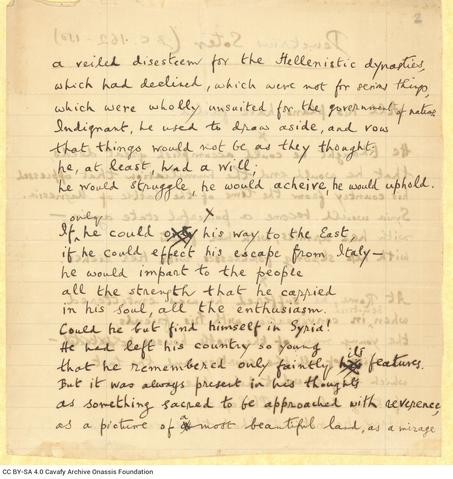 2
a veiled disesteem for the Hellenistic dynasties,
which had declined, which were not for serious things,
which were wholly unsuited for the government of nations
Indignant, he used to draw aside, and vow
that things would not be as they thought:
he, at least, had a will;
he would struggle, he would acheive, he would uphold.
If only he could his way to the East,
if he could effect his escape from Italy—
he would impart to the people
all the strength that he carried
in his soul, all the enthusiasm.
Could he but find himself in Syria!
He had left his country so young
that he remembered only faintly its features.
But it was always present in his thoughts
as something sacred to be approached with reverence,
as a picture of a most beautiful land, as a mirage
CC BY-SA 4.0 Cavafy Archive Onassis Foundation